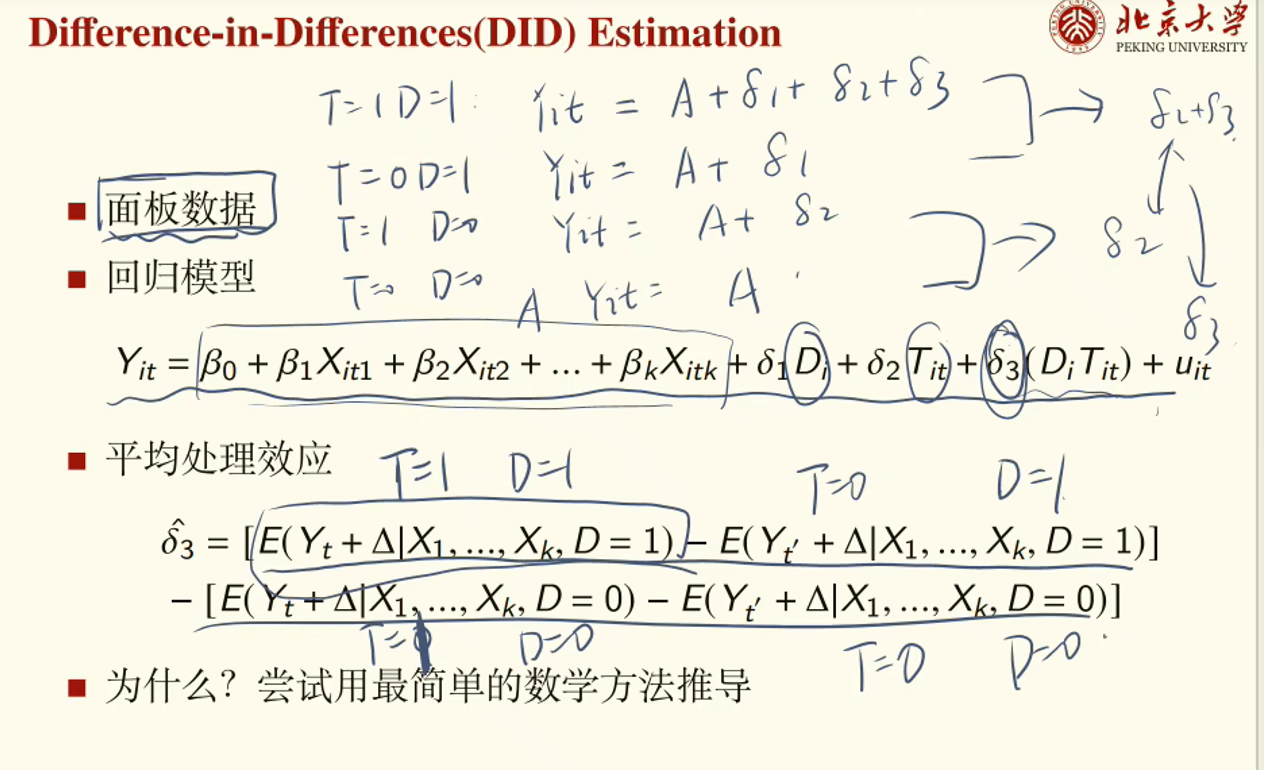 Difference-in-Differences(DID) Estimation
北京大学
PEKING UNIVERSITY
T=1 D=1: Yit = A + δ1 + δ2 + δ3 → δ2+δ3
T=0 D=1 Yit = A + δ1
面板数据
T=1 D=0 Yit = A + δ2 → δ2
回归模型
T=0 D=0 Yit = A
A
δ3
Y_{it} = β_0 + β_1X_{it1} + β_2X_{it2} + ... + β_kX_{itk} + δ_1D_i + δ_2T_{it} + δ_3(D_iT_{it}) + u_{it}
平均处理效应
T=1 D=1 T=0 D=1
δ̂_3 = [E(Y_t + Δ|X_1, ..., X_k, D = 1) − E(Y_{t′} + Δ|X_1, ..., X_k, D = 1)]
− [E(Y_t + Δ|X_1, ..., X_k, D = 0) − E(Y_{t′} + Δ|X_1, ..., X_k, D = 0)]
D=0 T=0 D=0
为什么？尝试用最简单的数学方法推导